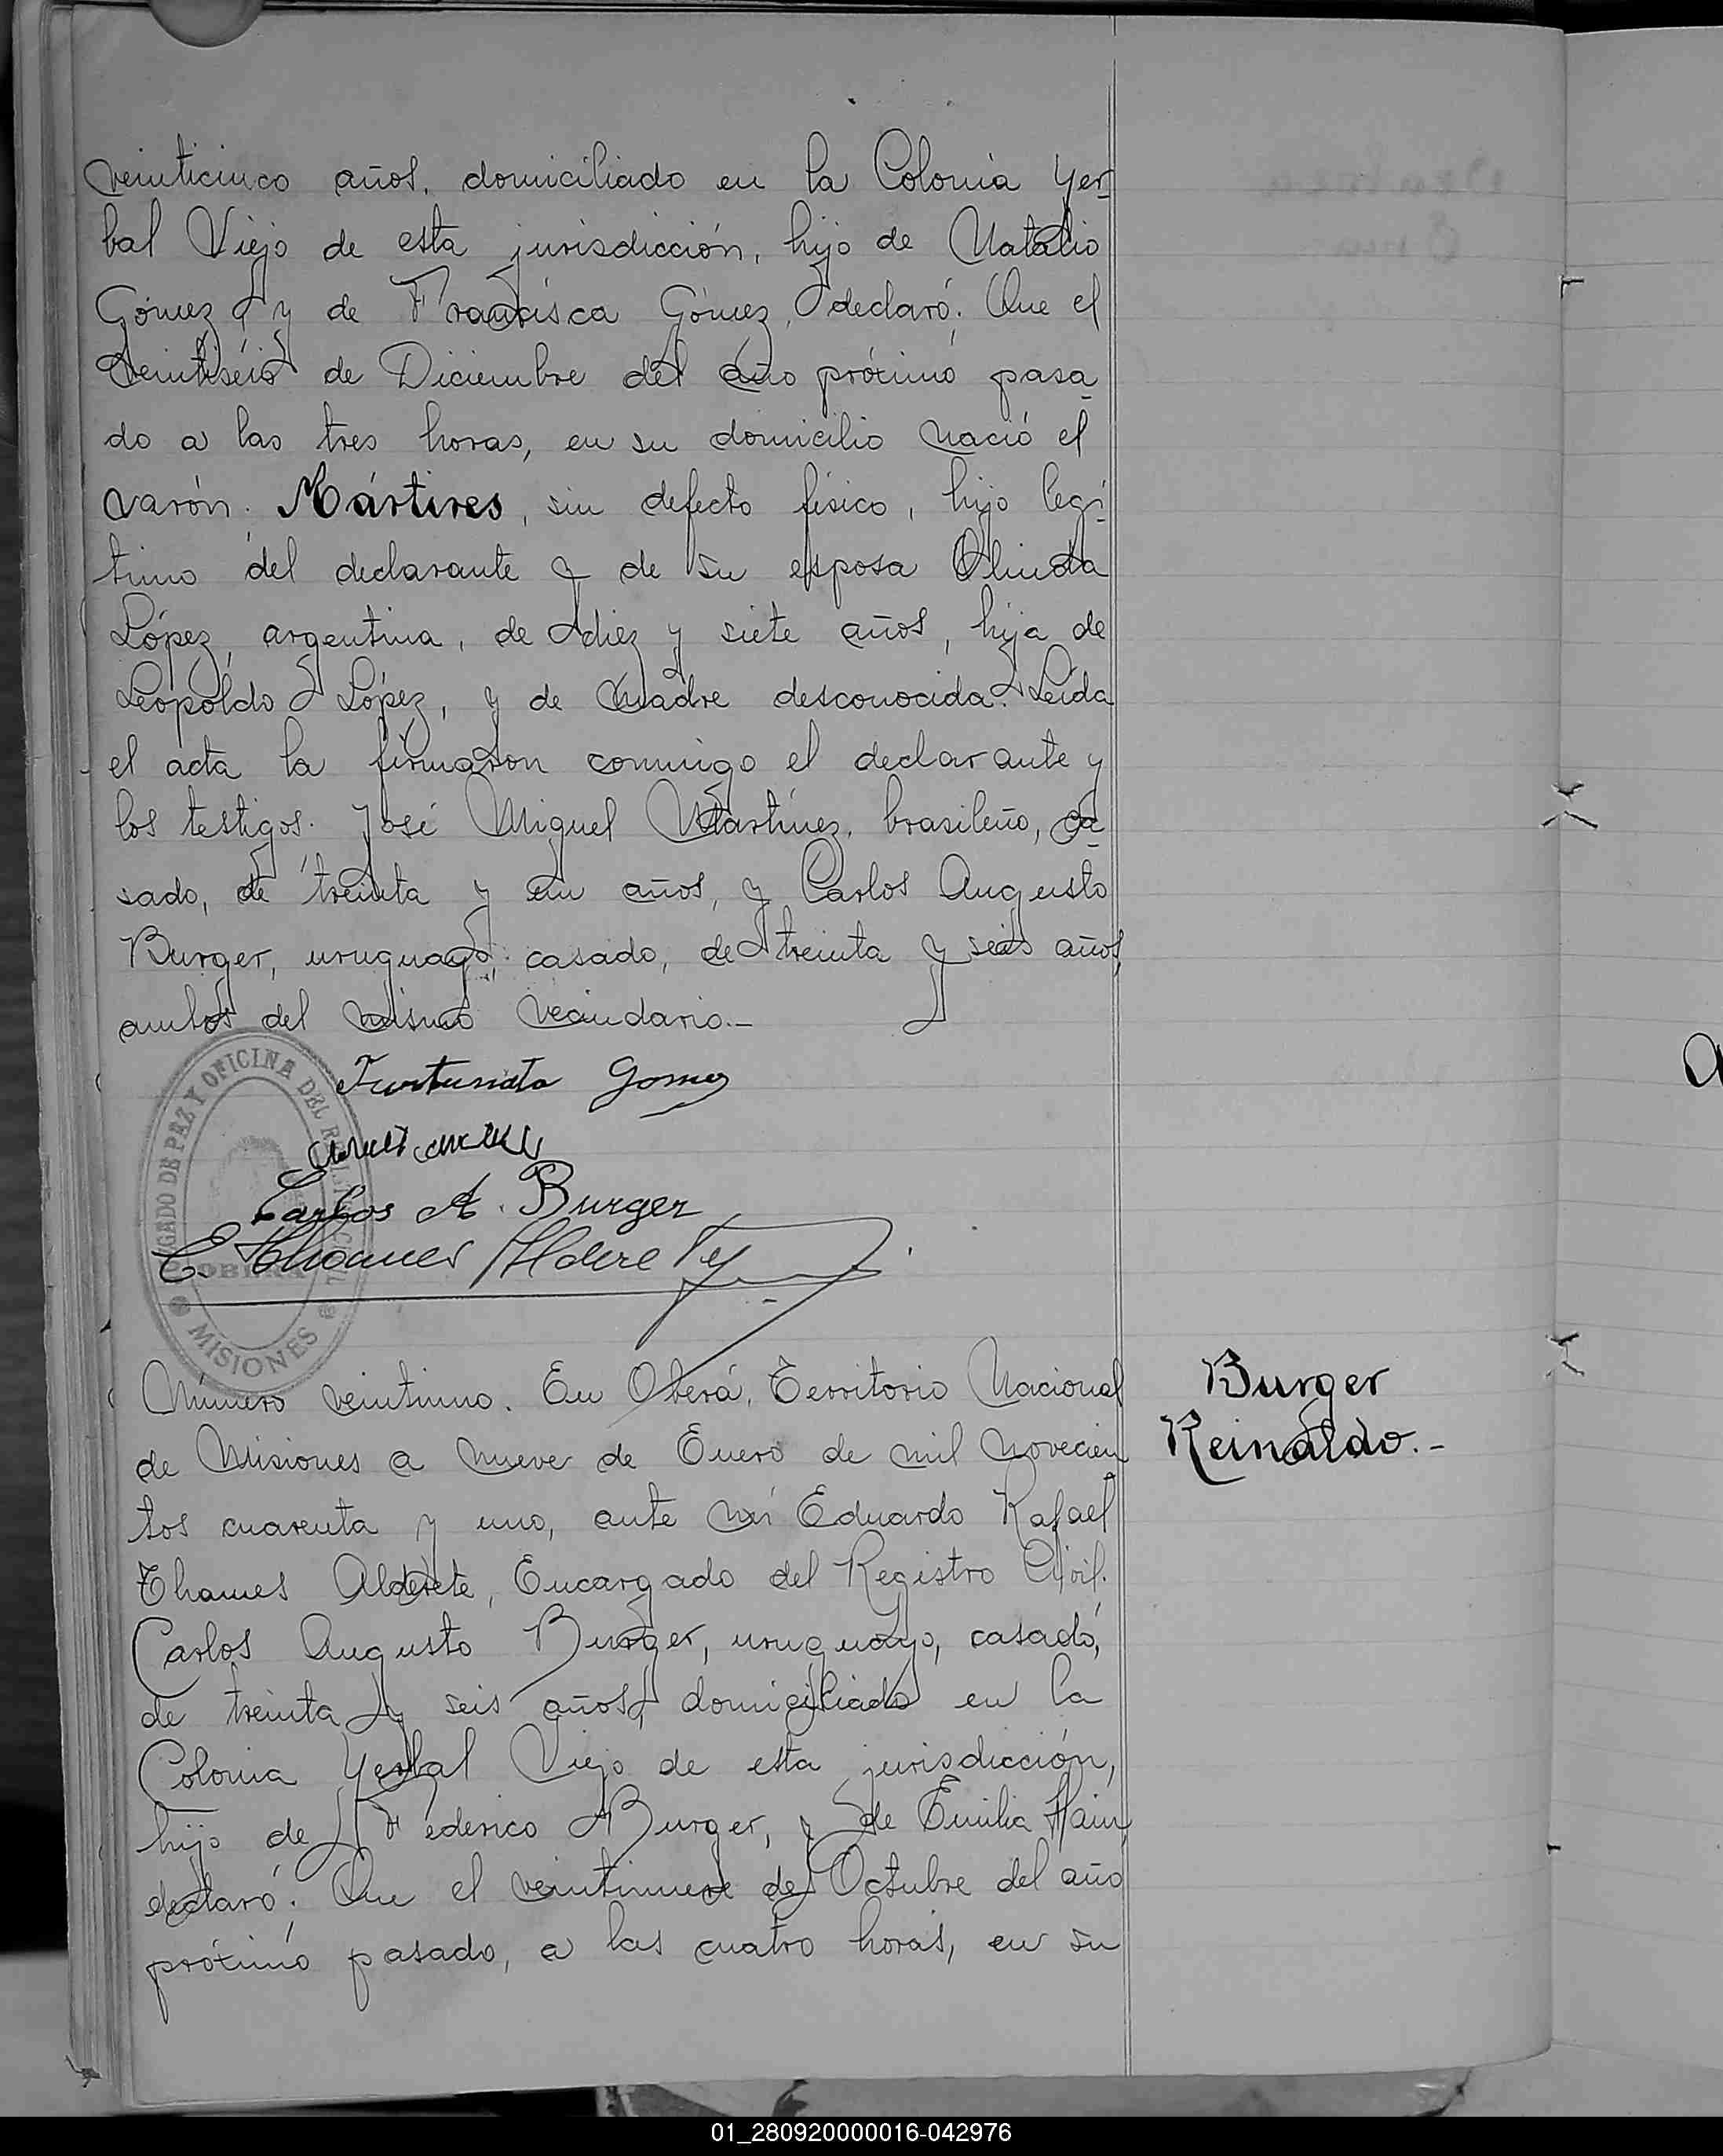 veinticinco años, domiciliado en la Colonia Yer-
bal Viejo de esta jurisdicción, hijo de Natalio
Gómez y de Francisca Gómez, declaró: Que el
veintiséis de Diciembre del año próximo pasa-
do a las tres horas, en su domicilio nació el
varón: Mártires, sin defecto físico, hijo legí-
timo del declarante y de su esposa Olinda
López, argentina, de diez y siete años, hija de
Leopoldo López, y de madre desconocida. Leída
el acta la firmaron conmigo el declarante y
los testigos: José Miguel Martínez, brasileño, ca-
sado, de treinta y un años, y Carlos Augusto
Burger, uruguayo, casado, de treinta y seis años,
ambos del mismo vecindario.-
Furtunato Gomez
Carlos A. Burger
E. Thames Alderete
JUZGADO DE PAZ Y OFICINA DEL REG. CIVIL
OBERA
MISIONES
Número veintiuno. En Oberá, Territorio Nacional
de Misiones a nueve de Enero de mil novecien
tos cuarenta y uno, ante mí Eduardo Rafael
Thames Alderete, Encargado del Registro Civil.
Carlos Augusto Burger, uruguayo, casado,
de treinta y seis años, domiciliado en la
Colonia Yerbal Viejo de esta jurisdicción,
hijo de Federico Burger, y de Emilia Hain,
declaró: Que el veintinueve de Octubre del año
próximo pasado, a las cuatro horas, en su
Burger
Reinaldo.-
01_280920000016-042976